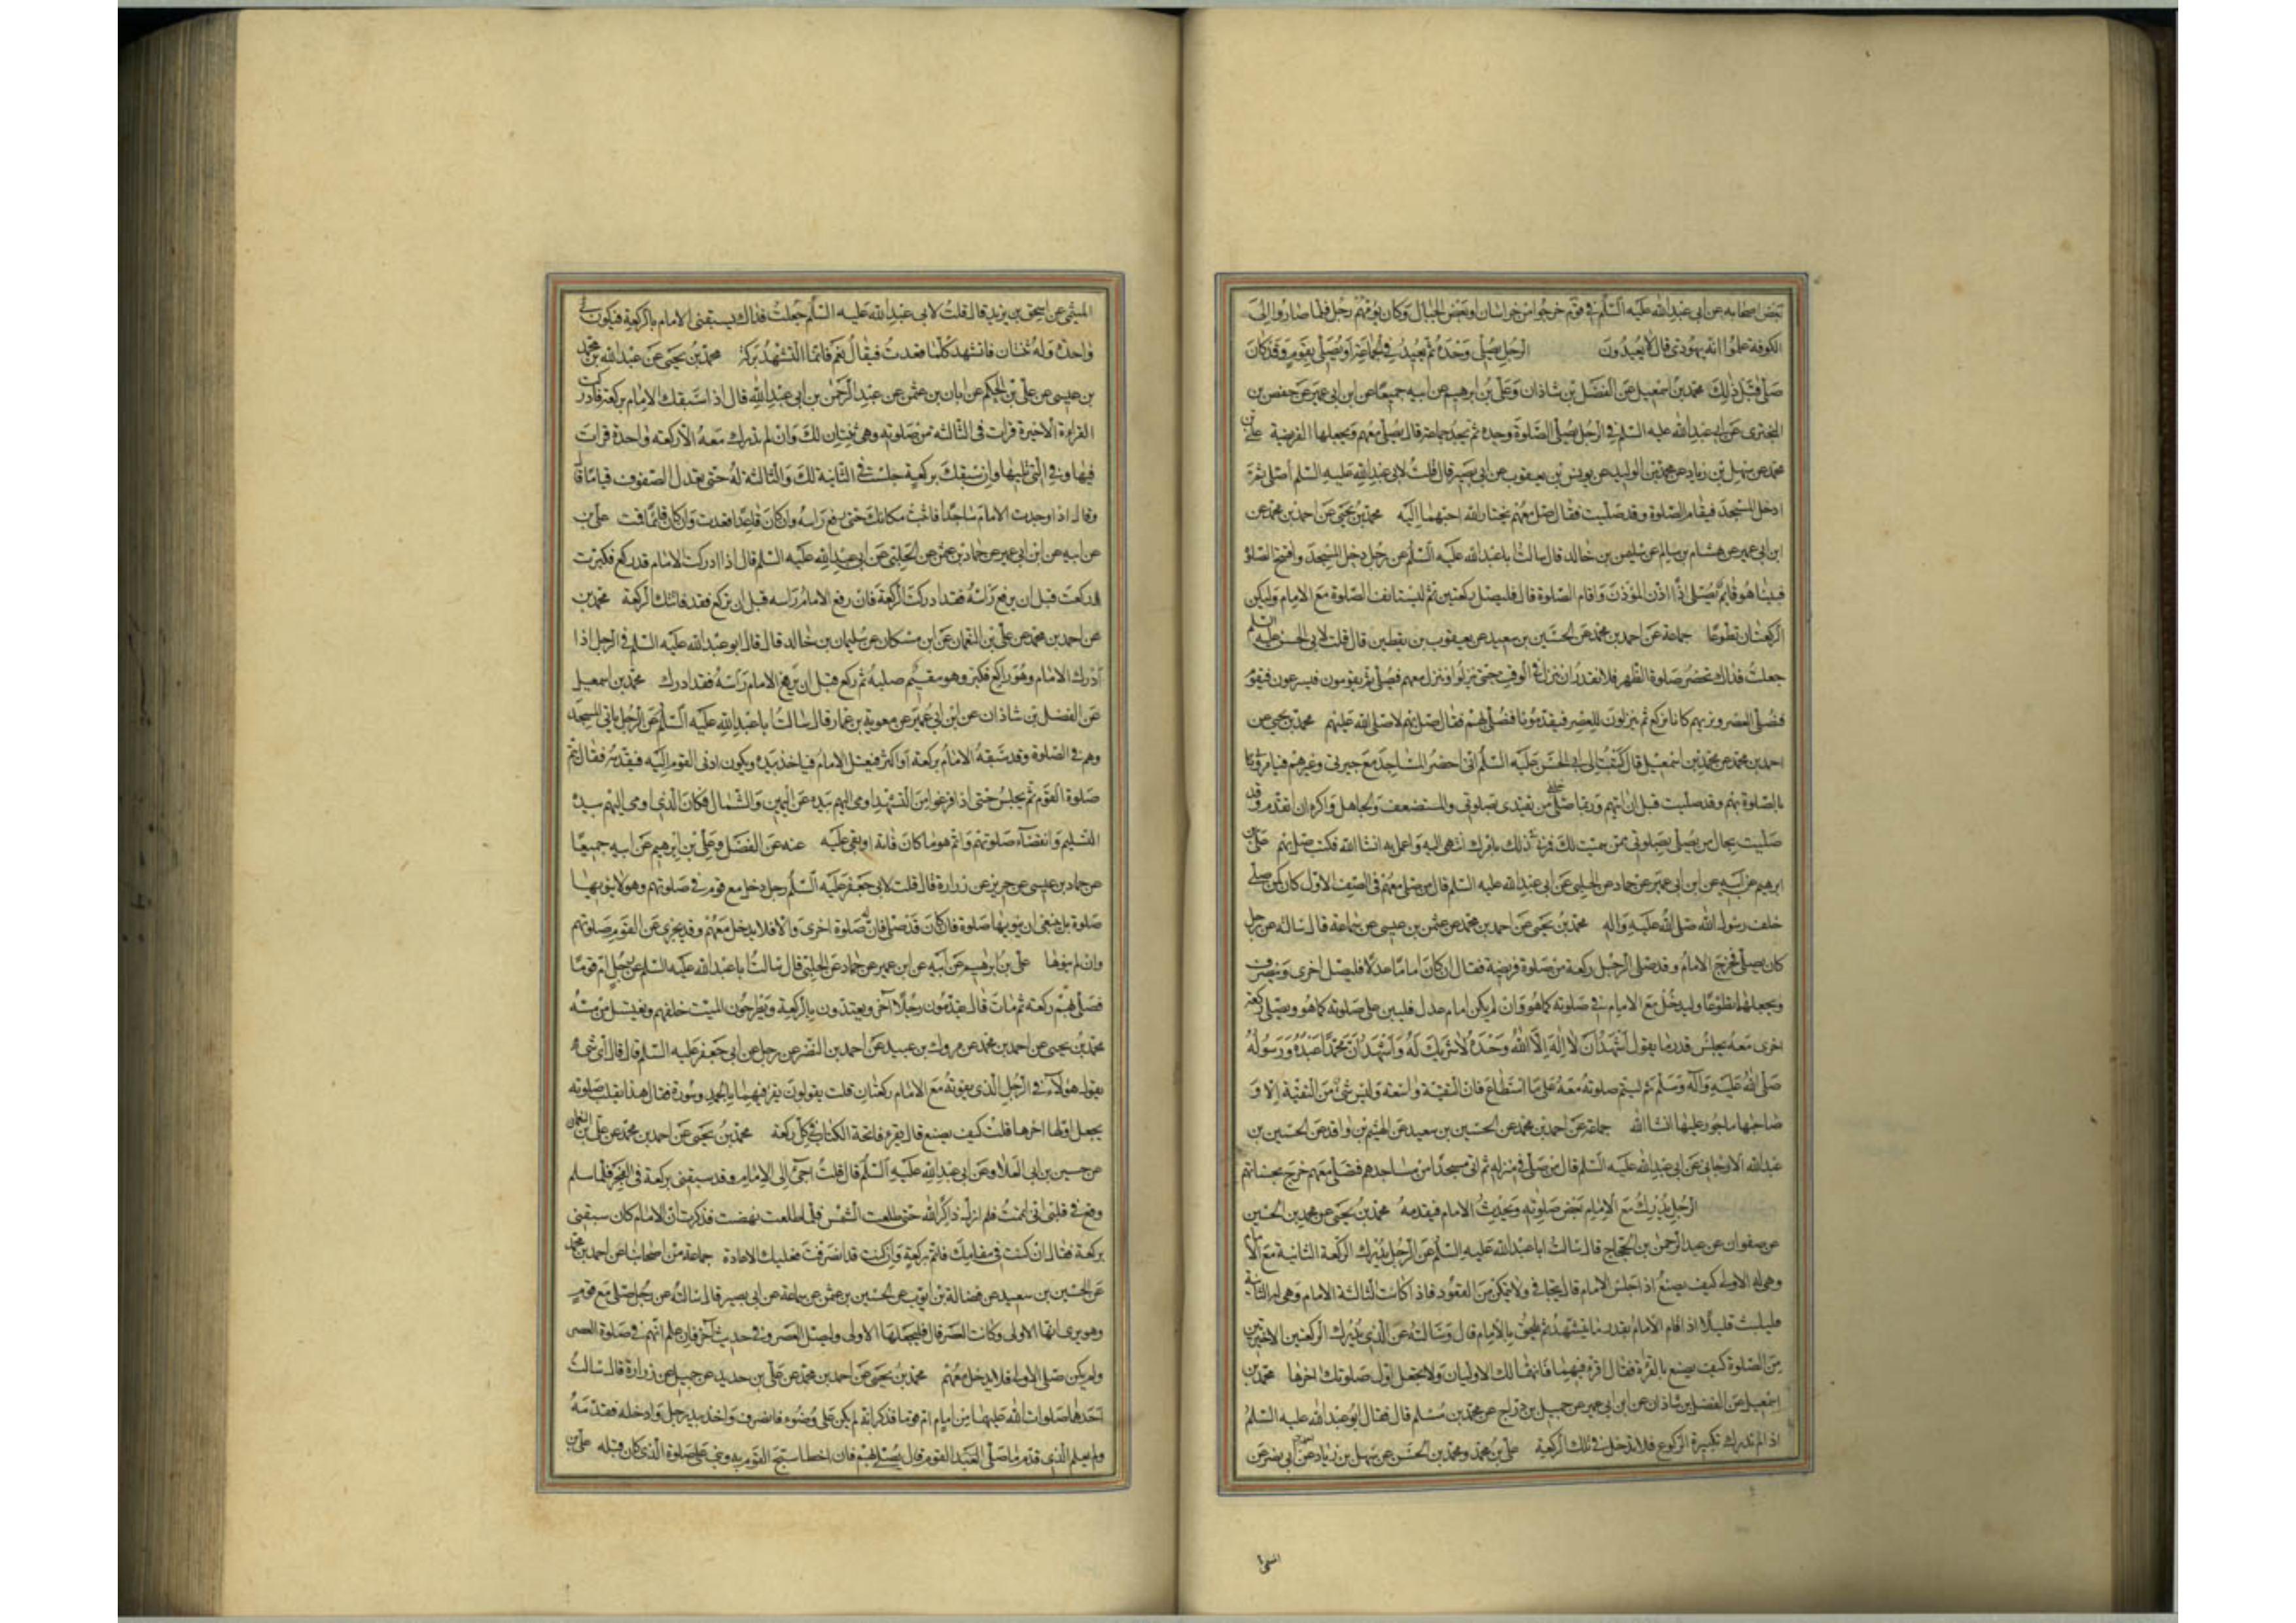 بعض اصحابه عن ابى عبد الله عليه السلم فى قوم خرجوا من خراسان او بعض الجبال وكان يؤمهم رجل فلما صاروا الى
الكوفة علموا انه يهودى قال لا يعيدون الرجل يصلى وحده ثم يعيد فى الجماعة او يصلى بقوم وقد كان
صلى قبل ذلك محمد بن اسمعيل عن الفضل بن شاذان وعلى بن ابرهيم عن ابيه جميعا عن ابن ابى عمير عن حفص بن
البخترى عن ابى عبد الله عليه السلم فى الرجل يصلى الصلوة وحده ثم يجد جماعة قال يصلى معهم ويجعلها الفريضة على بن
محمد عن سهل بن زياد عن محمد بن الوليد عن يونس بن يعقوب عن ابى بصير قال قلت لابى عبد الله عليه السلم اصلى ثم
ادخل المسجد فيقام الصلوة وقد صليت فقال صل معهم يختار الله احبهما اليه محمد بن يحيى عن احمد بن محمد عن
ابن ابى عمير عن هشام بن سالم عن سليمن بن خالد قال سالت ابا عبد الله عليه السلم عن رجل دخل المسجد وافتتح الصلوة
فبينا هو قايم يصلى اذا اذن المؤذن واقام الصلوة قال فليصل ركعتين ثم ليستانف الصلوة مع الامام وليكن
الركعتان تطوعا جماعة عن احمد بن محمد عن الحسين بن سعيد عن يعقوب بن يقطين قال قلت لابى الحسن عليه السلم
جعلت فداك تحضر صلوة الظهر فلا نقدر ان ننزل فى الوقت حتى ينزلوا وننزل معهم فنصلى ثم يقومون فيسرعون فنقوم
فنصلى العصر ونريهم كانا نركع ثم ينزلون للعصر فيقدمونا فنصلى بهم فقال صل بهم لا صلى الله عليهم محمد بن يحيى عن
احمد بن محمد عن محمد بن اسمعيل قال كتبت الى ابى الحسن عليه السلم انى احضر المساجد مع جيرتى وغيرهم فيامرونى
بالصلوة بهم وقد صليت قبل ان اتيهم وربما صلى خلفى من يقتدى بصلوتى والمستضعف والجاهل واكره ان اتقدم وقد
صليت بحال من يصلى بصلوتى ممن سميت لك فمرنى فى ذلك بامرك انتهى اليه واعمل به انشا الله فكتب صل بهم على بن
ابرهيم عن ابيه عن ابن ابى عمير عن حماد عن الحلبى عن ابى عبد الله عليه السلم قال من صلى معهم فى الصف الاول كان كمن صلى
خلف رسول الله صلى الله عليه واله محمد بن يحيى عن احمد بن محمد عن عثمن بن عيسى عن سماعة قال سالته عن رجل
كان يصلى فخرج الامام وقد صلى الرجل ركعة من صلوة فريضة فقال ان كان اماما عدلا فليصل اخرى وينصرف
ويجعلهما تطوعا وليدخل مع الامام فى صلوته كما هو وان لم يكن امام عدل فليبن على صلوته كما هو ويصلى ركعة
اخرى معه يجلس قدر ما يقول اشهد ان لا اله الا الله وحده لا شريك له واشهد ان محمدا عبده ورسوله
صلى الله عليه واله وسلم ثم ليتم صلوته معه على ما استطاع فان التقية واسعة وليس شئ من التقية الا و
صاحبها ماجور عليها انشا الله جماعة عن احمد بن محمد عن الحسين بن سعيد عن الهيثم بن واقد عن الحسين بن
عبد الله الارجانى عن ابى عبد الله عليه السلم قال من صلى فى منزله ثم اتى مسجدا من مساجدهم فصلى معهم خرج بحسناتهم
الرجل يدرك مع الامام بعض صلوته ويحدث الامام فيقدمه محمد بن يحيى عن محمد بن الحسين
عن صفوان عن عبد الرحمن بن الحجاج قال سالت ابا عبد الله عليه السلم عن الرجل يدرك الركعة الثانية مع الامام
وهى له الاولى كيف يصنع اذا جلس الامام قال يتجافى ولا يتمكن من القعود فاذا كانت الثالثة الامام وهى له الثانية
فليلبث قليلا اذا قام الامام بقدر ما يتشهد ثم يلحق بالامام قال وسالته عن الذى يدرك الركعتين الاخيرتين
من الصلوة كيف يصنع بالقراة فقال اقرء فيهما فانهما لك الاوليان ولا تجعل اول صلوتك اخرها محمد بن
اسمعيل عن الفضل بن شاذان عن ابن ابى عمير عن جميل بن دراج عن محمد بن مسلم قال قال ابو عبد الله عليه السلم
اذا لم تدرك تكبيرة الركوع فلا تدخل فى تلك الركعة على بن محمد ومحمد بن الحسن عن سهل بن زياد عن ابى نصر عن
المیثمى عن اسحق بن يزيد قال قلت لابى عبد الله عليه السلم جعلت فداك يسبقنى الامام بالركعة فيكون لى
واحدة وله ثنتان فاتشهد كلما قعدت فقال نعم فانما التشهد بركة محمد بن يحيى عن عبد الله بن محمد
بن عيسى عن على بن الحكم عن ابان بن عثمن عن عبد الرحمن بن ابى عبد الله قال اذا سبقك الامام بركعة فادركت
القراءة الاخيرة قرات فى الثالثة من صلوته وهى ثنتان لك وان لم تدرك معه الا ركعة واحدة قرات
فيها وفى التى تليها وان سبقك بركعة جلست فى الثانية لك والثالثة له حتى يعتدل الصفوف قياما قال
وقال اذا وجدت الامام ساجدا فاثبت مكانك حتى يرفع راسه وان كان قاعدا قعدت وان كان قائما قمت على بن
عن ابيه عن ابن ابى عمير عن حماد بن عثمن عن الحلبى عن ابى عبد الله عليه السلم قال اذا ادركت الامام قد ركع فكبرت
وركعت قبل ان يرفع راسه فقد ادركت الركعة فان رفع الامام راسه قبل ان تركع فقد فاتتك الركعة محمد بن
عن احمد بن محمد عن على بن النعمان عن ابن مسكان عن سليمان بن خالد قال قال ابو عبد الله عليه السلم فى الرجل اذا
ادرك الامام وهو راكع فكبر وهو مقيم صلبه ثم ركع قبل ان يرفع الامام راسه فقد ادرك محمد بن اسمعيل
عن الفضل بن شاذان عن ابن ابى عمير عن معوية بن عمار قال سالت ابا عبد الله عليه السلم عن الرجل ياتى المسجد
وهم فى الصلوة وقد سبقه الامام بركعة او اكثر فيعتل الامام فياخذ بيده ويكون ادنى القوم اليه فيقدمه فقال يتم
صلوة القوم ثم يجلس حتى اذا فرغوا من التشهد اومى اليهم بيده عن اليمين والشمال فكان الذى اومى اليهم بيده
التسليم وانقضاء صلوتهم واتم هو ما كان فاته او بقى عليه عنه عن الفضل وعلى بن ابرهيم عن ابيه جميعا
عن حماد بن عيسى عن حريز عن زرارة قال قلت لابى جعفر عليه السلم رجل دخل مع قوم فى صلوتهم وهو لا ينويها
صلوة
وان لم ينوها على بن ابرهيم عن ابيه عن ابن عمير عن حماد عن الحلبى قال سالت ابا عبد الله عليه السلم عن رجل ام قوما
فصلى بهم ركعة ثم مات قال يقدمون رجلا اخر ويعتدون بالركعة ويطرحون الميت خلفهم ويغتسل من مسه
محمد بن يحيى عن احمد بن محمد عن مروك بن عبيد عن احمد بن النضر عن رجل عن ابى جعفر عليه السلم قال قال اى شئ
يقول هؤلاء فى الرجل الذى يفوته مع الامام ركعتان قلت يقولون يقرء فيهما بالحمد وسورة فقال هذا يقلب صلوته
يجعل اولها اخرها قلت كيف يصنع قال يقرء فاتحة الكتاب فى كل ركعة محمد بن يحيى عن احمد بن محمد عن على بن النعمان
عن حسين بن ابى العلا وعن ابى عبد الله عليه السلم قال قلت اجئ الى الامام وقد سبقنى بركعة فى الفجر فلما سلم
وقع فى قلبى انى اتممت فلم ازل ذاكرا لله حتى طلعت الشمس فلما طلعت نهضت فذكرت ان الامام كان سبقنى
بركعة فقال ان كنت فى مقامك فاتم بركعة وان كنت قد انصرفت فعليك الاعادة جماعة من اصحابنا عن احمد بن محمد
عن الحسين بن سعيد عن فضالة بن ايوب عن الحسين بن عثمن عن سماعة عن ابى بصير قال سالته عن رجل صلى مع قوم
وهو يرى انها الاولى وكانت العصر قال فليجعلها الاولى وليصل العصر وفى حديث اخر فان علم انهم فى صلوة العصر
ولم يكن صلى الاولى فلا يدخل معهم محمد بن يحيى عن احمد بن محمد عن على بن حديد عن جميل عن زرارة قال سالت
احدهما صلوات الله عليهما عن امام ام قوما فذكر انه لم يكن على وضوء فانصرف واخذ بيد رجل وادخله فقدمه
ولم يعلم الذى قدم ما صلى القوم قال يصلى بهم فان اخطا سبح القوم به وبنى على صلوة الذى كان قبله على بن
المیثمى